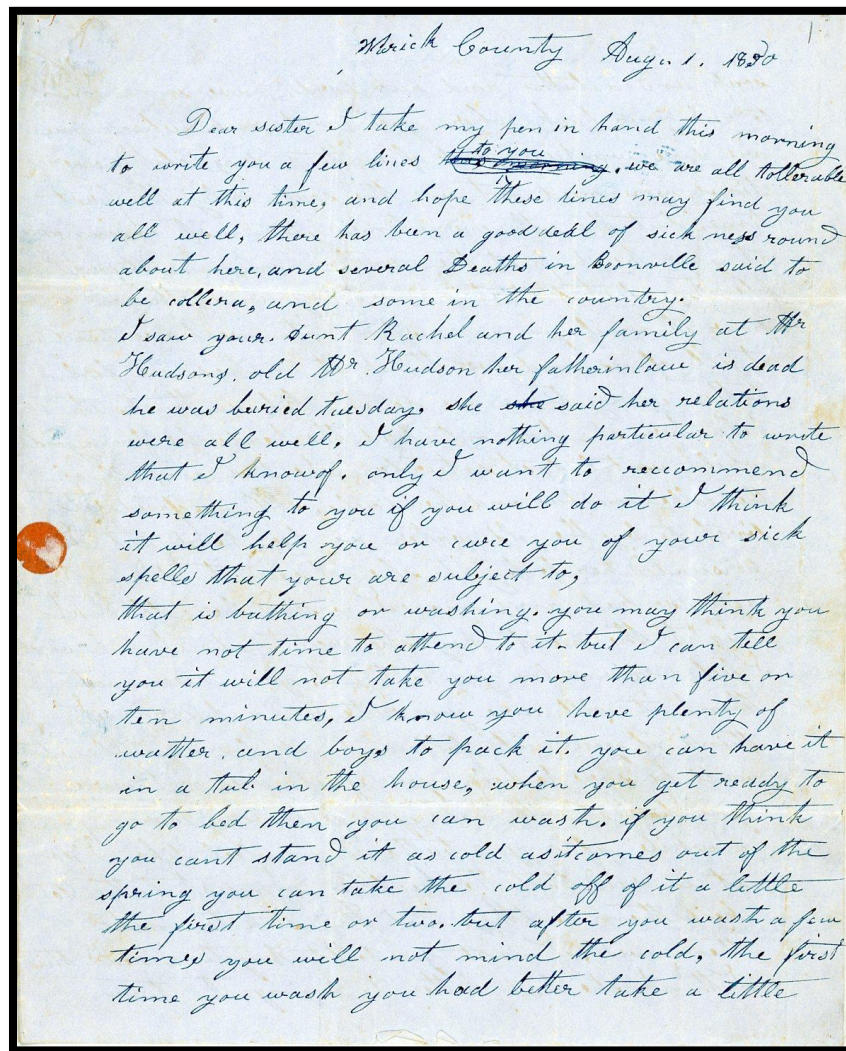 Warick County Aug. 1. 1850
Dear sister I take my pen in hand this morning
to you
to write you a few lines this morning, we are all tollerable
well at this time, and hope these lines may find you
all well, there has been a good deal of sick ness round
about here, and several Deaths in Boonville said to
be collera, and some in the country.
I saw your. Aunt Rachel and her family at Mr
Hudsons, old Mr. Hudson her fatherinlaw is dead
he was buried tuesday, she she said her relations
were all well, I have nothing particular to write
that I knowof. only I want to reccommend
something to you if you will do it I think
it will help you or cure you of your sick
spells that your are subject to,
that is bathing or washing. you may think you
have not time to attend to it. but I can tell
you it will not take you more than five or
ten minutes, I know you heve plenty of
watter, and boys to pack it. you can have it
in a tub in the house, when you get ready to
go to bed then you can wash. if you think
you cant stand it as cold asitcomes out of the
spring you can take the cold off of it a little
the first time or two. but after you wash a few
times you will not mind the cold, the first
time you wash you had better take a little